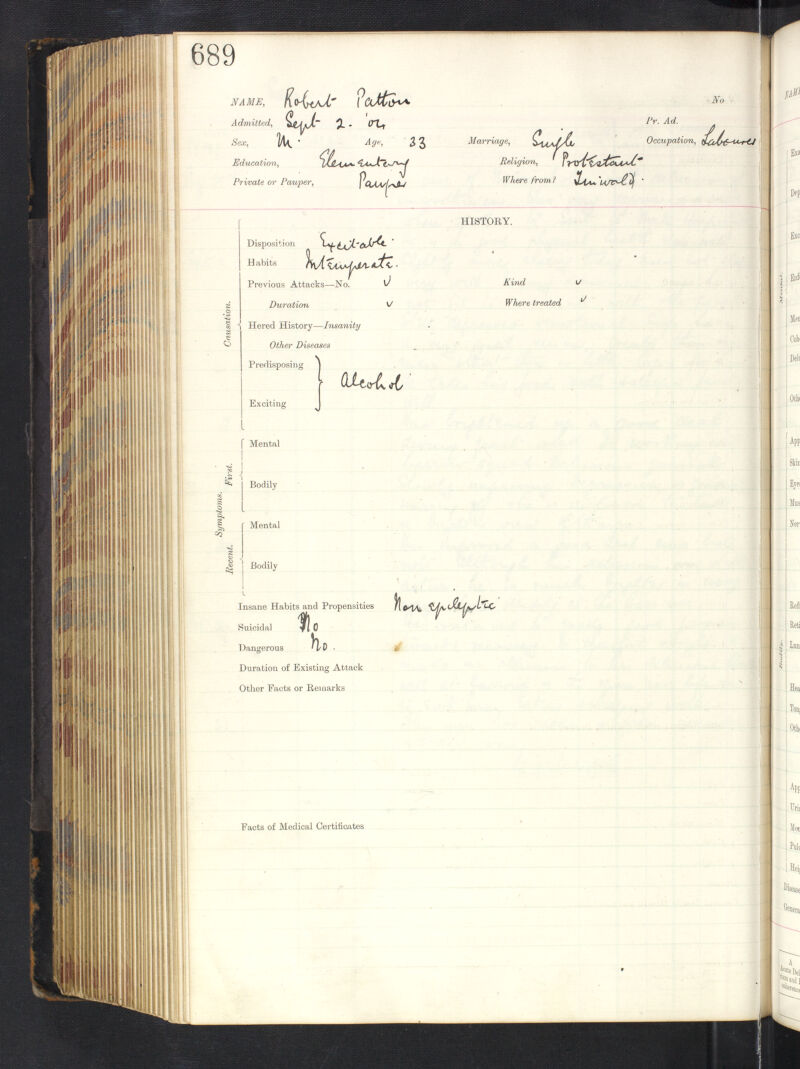 689
NAME, Robert Patton No
Admitted, Sept 2. '04 Pr. Ad.
Sex, M. Age, 33 Marriage, Single Occupation, Labourer
Education, Elementary Religion, Protestant
Private or Pauper, Pauper Where from?
HISTORY.
Causation.
Disposition Excitable.
Habits Intemperate.
Previous Attacks—No. √ Kind √
Duration √ Where treated √
Hered History—Insanity
Other Diseases
Predisposing
Alcohol
Exciting
Symptoms.
First.
Mental
Bodily
Recent.
Mental
Bodily
Insane Habits and Propensities Non epileptic
Suicidal No
Dangerous No.
Duration of Existing Attack
Other Facts or Remarks
Facts of Medical Certificates